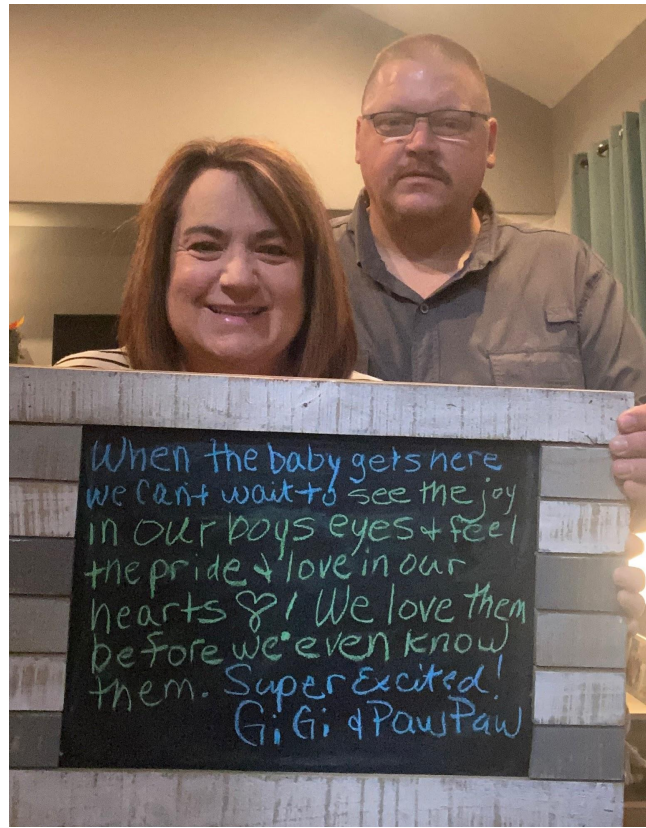 When the baby gets here
we can't wait to see the joy
in our boys eyes & feel
the pride & love in our
hearts ♡! We love them
before we even know
them. Super Excited!
GiGi & PawPaw